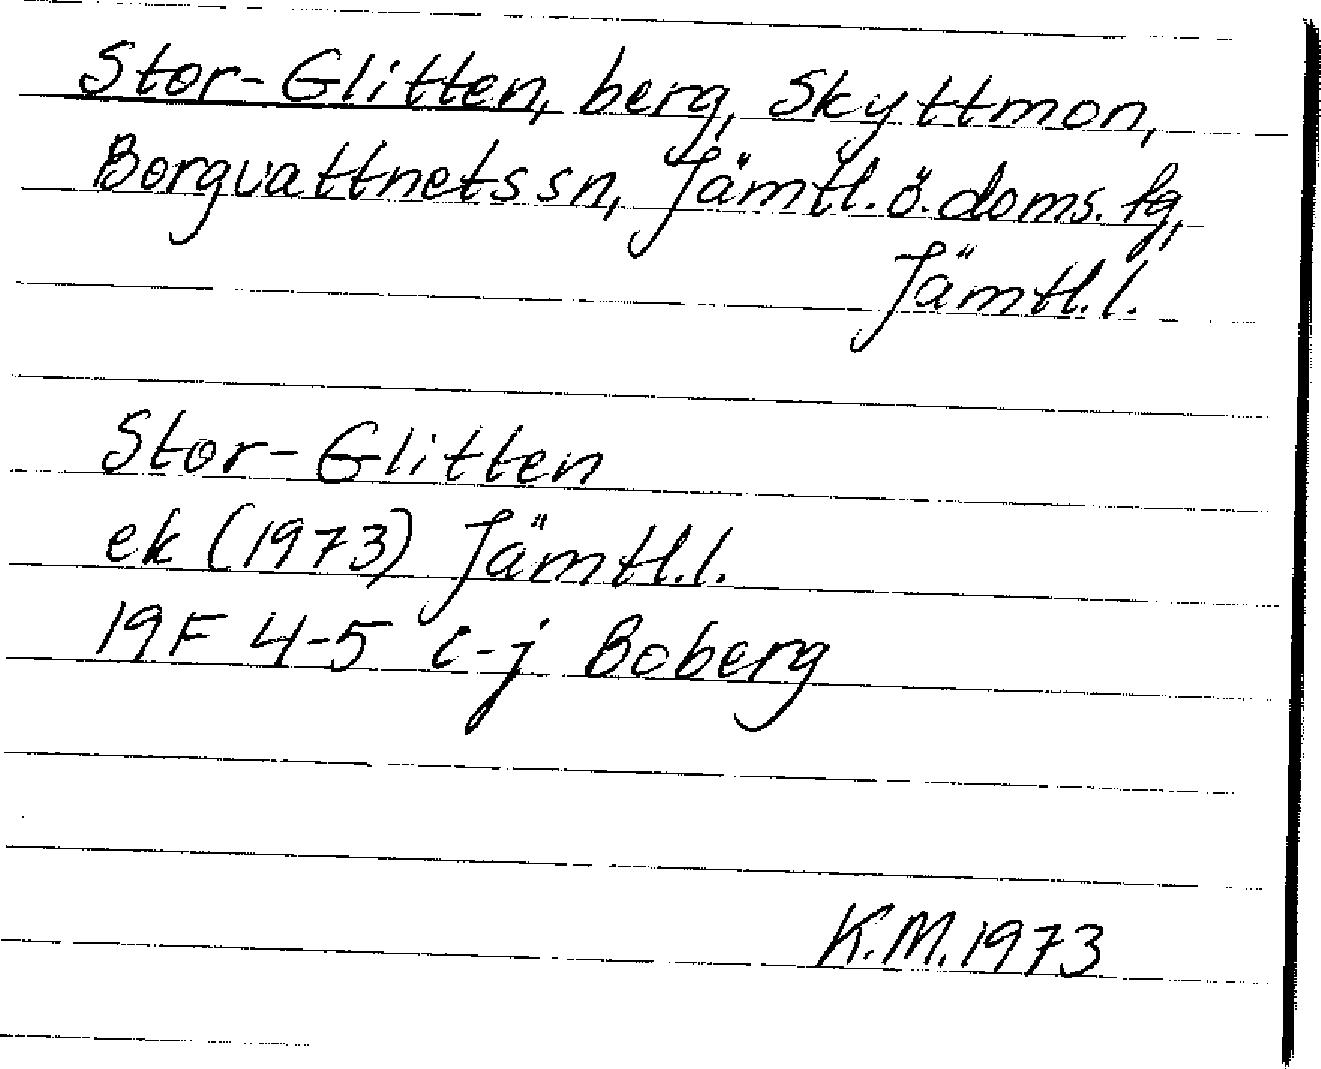 Stor-Glitten, berg, Skyttmon,
Borgvattnets sn, Jämtl. ö. doms. fg,
Jämtl. l.
Stor-Glitten
ek (1973) Jämtl. l.
19F 4-5 i-j Boberg
K.M. 1973